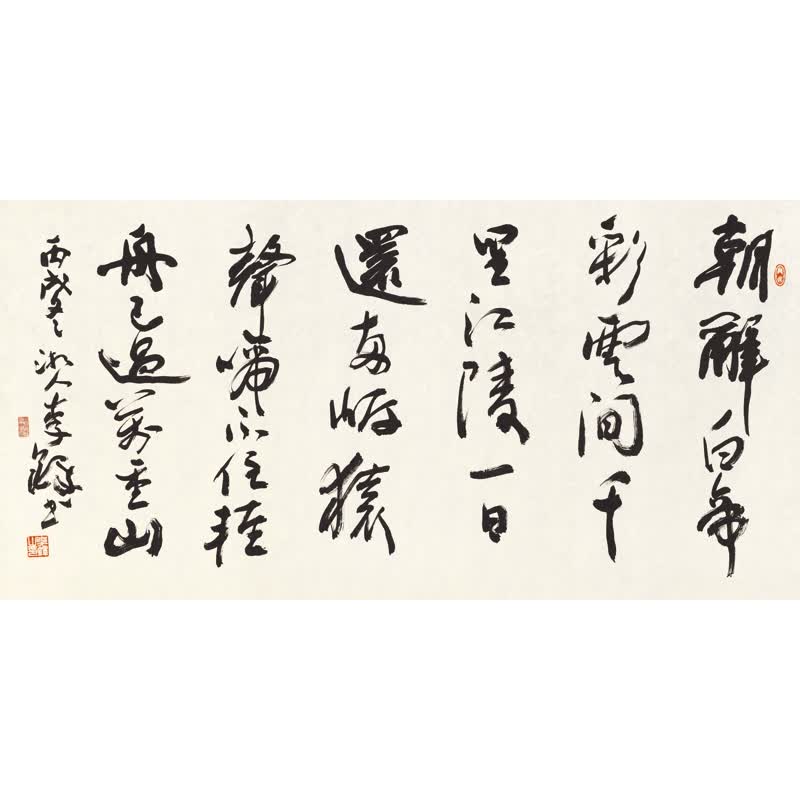 朝辭白帝
彩雲間千
里江陵一日
還兩岸猿
聲啼不住輕
舟已過萬重山
丙戌冬湘人李鐸书